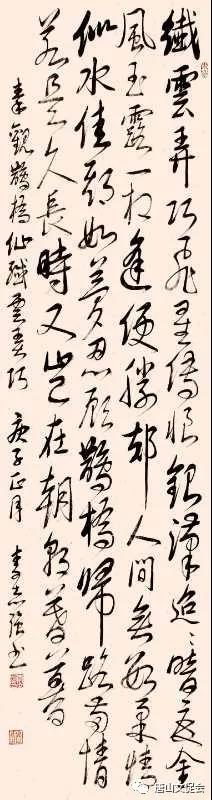 纖雲弄巧飛星傳恨銀漢迢〻暗度金
風玉露一相逢便勝却人間無數柔情
似水佳期如夢忍顧鵲橋歸路兩情
若是久長時又豈在朝朝暮暮
秦觀鵲橋仙纖雲弄巧 庚子正月 李志强书
唐山文促会